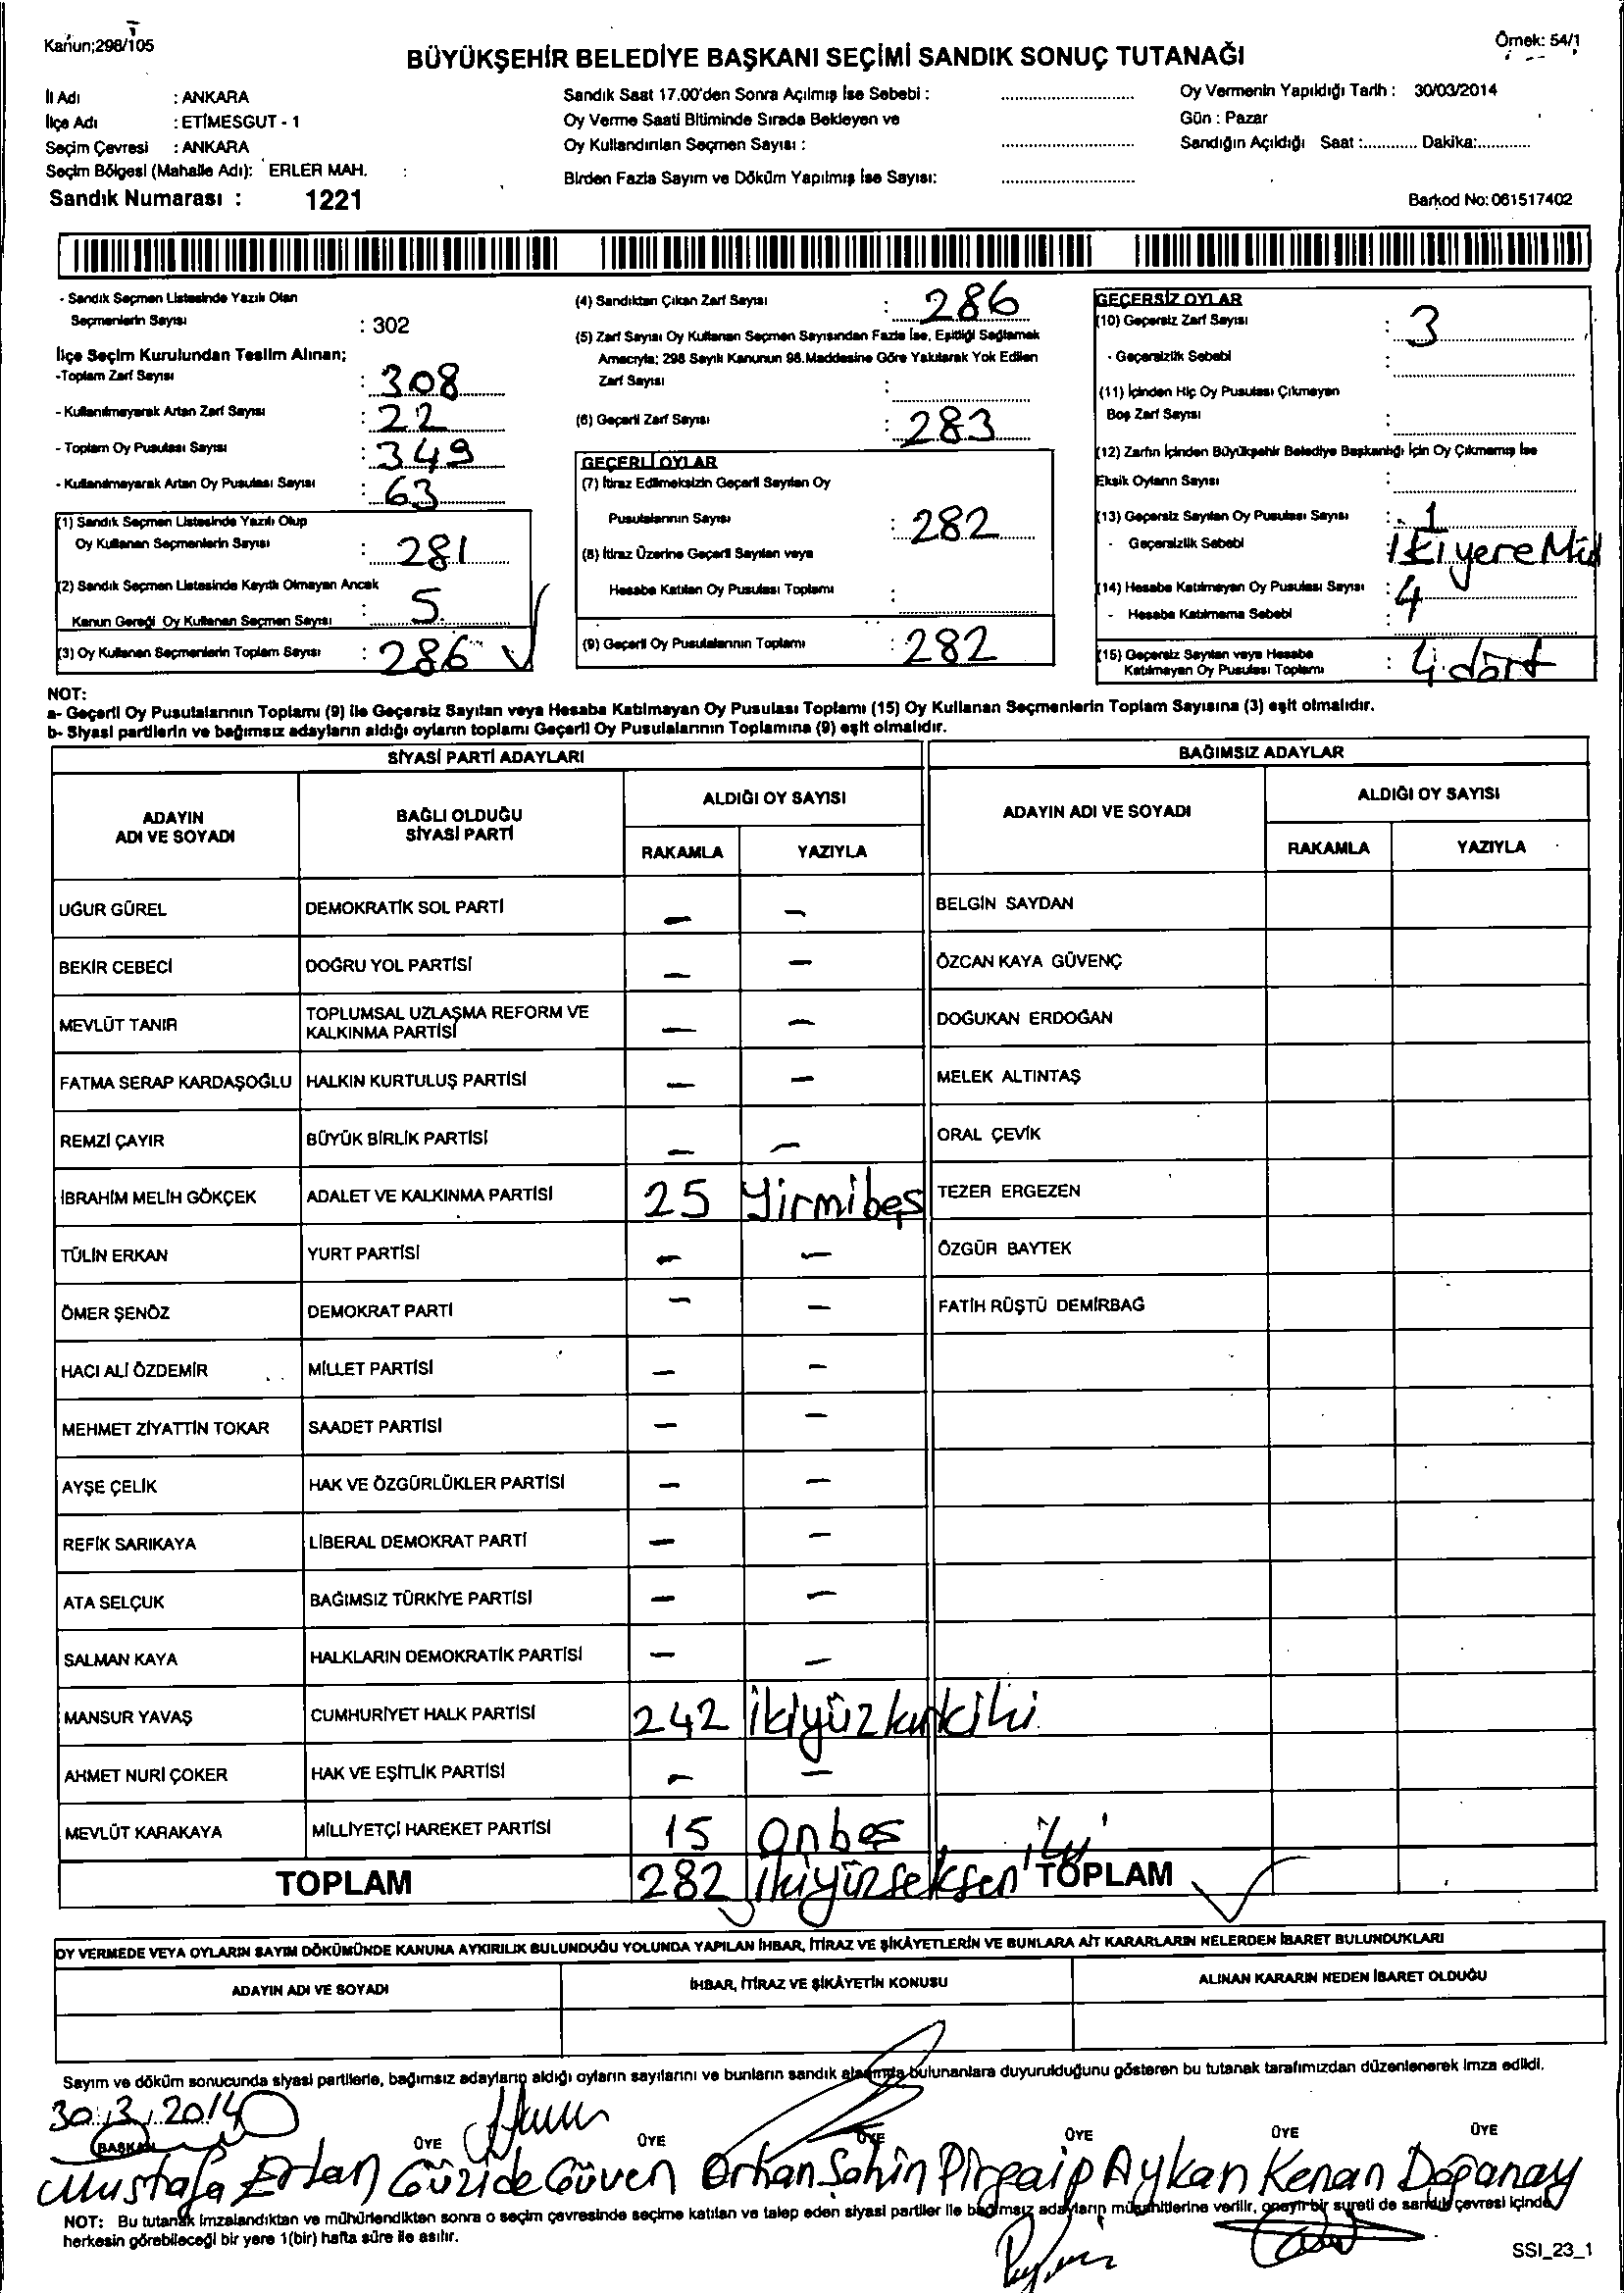 Kanun;298/105
Örnek: 54/1
BÜYÜKŞEHİR BELEDİYE BAŞKANI SEÇİMİ SANDIK SONUÇ TUTANAĞI
İl Adı : ANKARA
İlçe Adı : ETİMESGUT - 1
Seçim Çevresi : ANKARA
Seçim Bölgesi (Mahalle Adı): ERLER MAH. :
Sandık Numarası : 1221
Sandık Saat 17.00'den Sonra Açılmış İse Sebebi :
Oy Verme Saati Bitiminde Sırada Bekleyen ve
Oy Kullandırılan Seçmen Sayısı :
Birden Fazla Sayım ve Döküm Yapılmış İse Sayısı:
Oy Vermenin Yapıldığı Tarih : 30/03/2014
Gün : Pazar
Sandığın Açıldığı Saat :............ Dakika:............
Barkod No: 061517402
- Sandık Seçmen Listesinde Yazılı Olan
Seçmenlerin Sayısı : 302
İlçe Seçim Kurulundan Teslim Alınan;
-Toplam Zarf Sayısı : 308
- Kullanılmayarak Artan Zarf Sayısı : 22
- Toplam Oy Pusulası Sayısı : 349
- Kullanılmayarak Artan Oy Pusulası Sayısı : 63
(1) Sandık Seçmen Listesinde Yazılı Olup
Oy Kullanan Seçmenlerin Sayısı : 281
(2) Sandık Seçmen Listesinde Kayıtlı Olmayan Ancak
Kanun Gereği Oy Kullanan Seçmen Sayısı : 5
(3) Oy Kullanan Seçmenlerin Toplam Sayısı : 286
(4) Sandıktan Çıkan Zarf Sayısı : 286
(5) Zarf Sayısı Oy Kullanan Seçmen Sayısından Fazla İse, Eşitliği Sağlamak
Amacıyla; 298 Sayılı Kanunun 98.Maddesine Göre Yakılarak Yok Edilen
Zarf Sayısı :
(6) Geçerli Zarf Sayısı : 283
GEÇERLİ OYLAR
(7) İtiraz Edilmeksizin Geçerli Sayılan Oy
Pusulalarının Sayısı : 282
(8) İtiraz Üzerine Geçerli Sayılan veya
Hesaba Katılan Oy Pusulası Toplamı :
(9) Geçerli Oy Pusulalarının Toplamı : 282
GEÇERSİZ OYLAR
(10) Geçersiz Zarf Sayısı : 3
- Geçersizlik Sebebi :
(11) İçinden Hiç Oy Pusulası Çıkmayan
Boş Zarf Sayısı :
(12) Zarfın İçinden Büyükşehir Belediye Başkanlığı İçin Oy Çıkmamış İse
Eksik Oyların Sayısı :
(13) Geçersiz Sayılan Oy Pusulası Sayısı : 1
- Geçersizlik Sebebi İki yere
(14) Hesaba Katılmayan Oy Pusulası Sayısı : 4
- Hesaba Katılmama Sebebi :
(15) Geçersiz Sayılan veya Hesaba
Katılmayan Oy Pusulası Toplamı : 4 dört
NOT:
a- Geçerli Oy Pusulalarının Toplamı (9) ile Geçersiz Sayılan veya Hesaba Katılmayan Oy Pusulası Toplamı (15) Oy Kullanan Seçmenlerin Toplam Sayısına (3) eşit olmalıdır.
b- Siyasi partilerin ve bağımsız adayların aldığı oyların toplamı Geçerli Oy Pusulalarının Toplamına (9) eşit olmalıdır.
SİYASİ PARTİ ADAYLARI BAĞIMSIZ ADAYLAR
ADAYIN ADI VE SOYADI BAĞLI OLDUĞU SİYASİ PARTİ ALDIĞI OY SAYISI ADAYIN ADI VE SOYADI ALDIĞI OY SAYISI
RAKAMLA YAZIYLA RAKAMLA YAZIYLA
UĞUR GÜREL DEMOKRATİK SOL PARTİ — — BELGİN SAYDAN
BEKİR CEBECİ DOĞRU YOL PARTİSİ — — ÖZCAN KAYA GÜVENÇ
MEVLÜT TANIR TOPLUMSAL UZLAŞMA REFORM VE KALKINMA PARTİSİ — — DOĞUKAN ERDOĞAN
FATMA SERAP KARDAŞOĞLU HALKIN KURTULUŞ PARTİSİ — — MELEK ALTINTAŞ
REMZİ ÇAYIR BÜYÜK BİRLİK PARTİSİ — — ORAL ÇEVİK
İBRAHİM MELİH GÖKÇEK ADALET VE KALKINMA PARTİSİ 25 Yirmibeş TEZER ERGEZEN
TÜLİN ERKAN YURT PARTİSİ — — ÖZGÜR BAYTEK
ÖMER ŞENÖZ DEMOKRAT PARTİ — — FATİH RÜŞTÜ DEMİRBAĞ
HACI ALİ ÖZDEMİR MİLLET PARTİSİ — —
MEHMET ZİYATTİN TOKAR SAADET PARTİSİ — —
AYŞE ÇELİK HAK VE ÖZGÜRLÜKLER PARTİSİ — —
REFİK SARIKAYA LİBERAL DEMOKRAT PARTİ — —
ATA SELÇUK BAĞIMSIZ TÜRKİYE PARTİSİ — —
SALMAN KAYA HALKLARIN DEMOKRATİK PARTİSİ — —
MANSUR YAVAŞ CUMHURİYET HALK PARTİSİ 242 ikiyüzkırkiki
AHMET NURİ ÇOKER HAK VE EŞİTLİK PARTİSİ — —
MEVLÜT KARAKAYA MİLLİYETÇİ HAREKET PARTİSİ 15 onbeş
TOPLAM 282 ikiyüzseksen iki TOPLAM
OY VERMEDE VEYA OYLARIN SAYIM DÖKÜMÜNDE KANUNA AYKIRILIK BULUNDUĞU YOLUNDA YAPILAN İHBAR, İTİRAZ VE ŞİKÂYETLERİN VE BUNLARA AİT KARARLARIN NELERDEN İBARET BULUNDUKLARI
ADAYIN ADI VE SOYADI İHBAR, İTİRAZ VE ŞİKÂYETİN KONUSU ALINAN KARARIN NEDEN İBARET OLDUĞU
Sayım ve döküm sonucunda siyasi partilerle, bağımsız adayların aldığı oyların sayılarını ve bunların sandık alanında bulunanlara duyurulduğunu gösteren bu tutanak tarafımızdan düzenlenerek imza edildi.
30.3.2014
BAŞKAN ÜYE ÜYE ÜYE ÜYE ÜYE ÜYE
Mustafa Ertan Güzide Güven Orhan Şahin Pirgaip Aykan Kenan Doğanay
NOT: Bu tutanak imzalandıktan ve mühürlendikten sonra o seçim çevresinde seçime katılan ve talep eden siyasi partiler ile bağımsız adayların müşahitlerine verilir, onaylı bir sureti de sandık çevresi içinde
herkesin görebileceği bir yere 1(bir) hafta süre ile asılır.
SSI_23_1